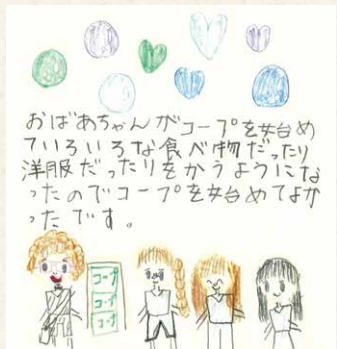 おばあちゃんがコープを始め
ていろいろな食べ物だったり
洋服だったりをかうようにな
ったのでコープを始めてよか
ったです。
コープ
コープ
コープ